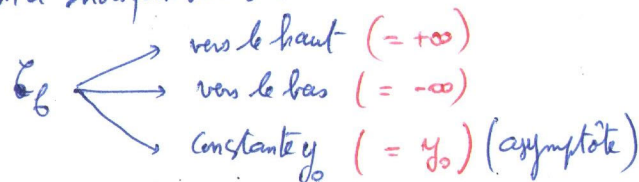 vers le haut (= +∞)
C_f vers le bas (= -∞)
constante y₀ (= y₀) (asymptôte)